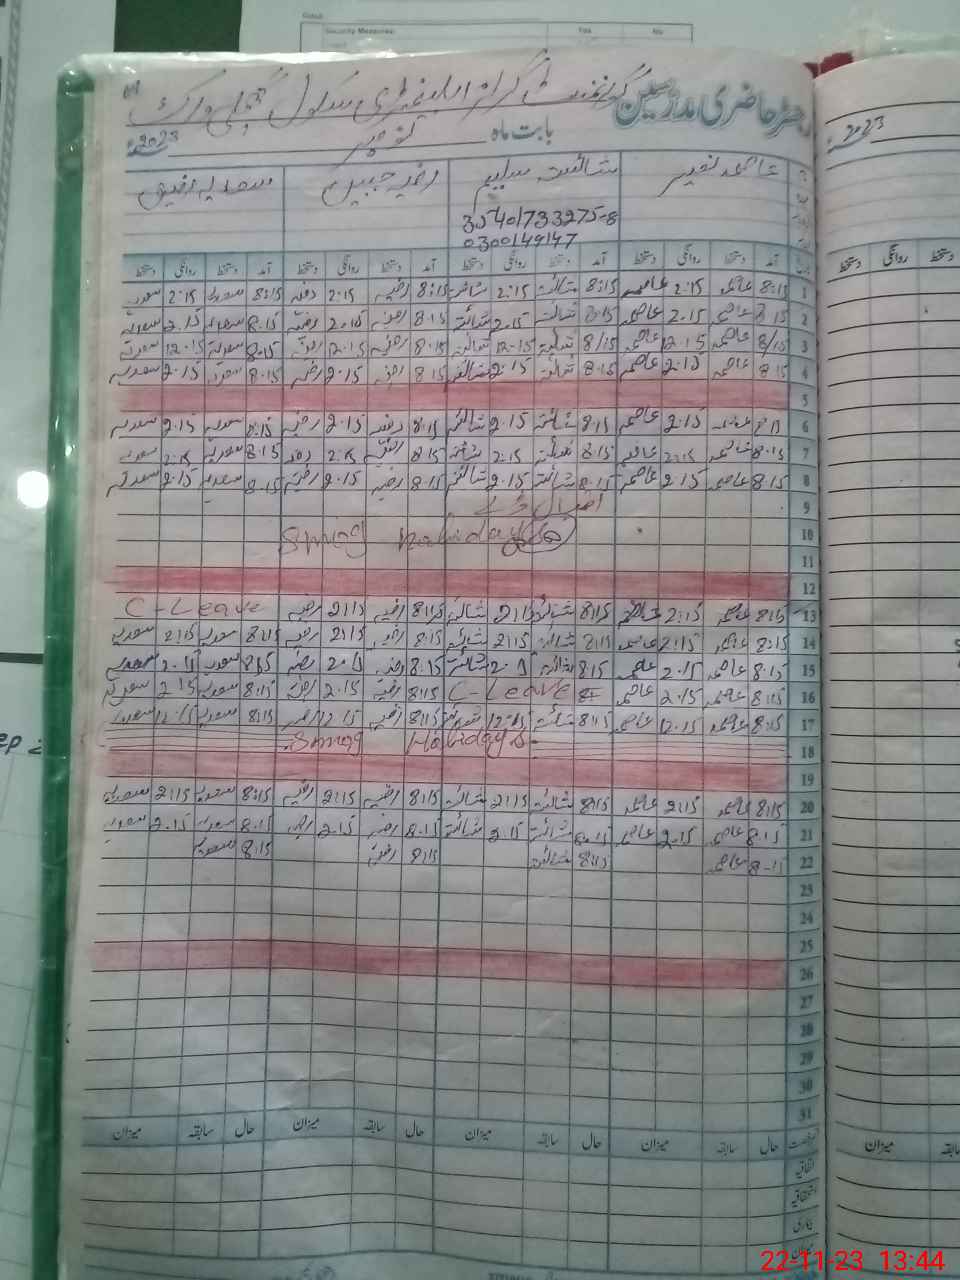 Security Measures: Yes No
رجسٹر حاضری مدرسین گورنمنٹ گرلز ایلیمنٹری سکول
بابت ماہ نومبر 2023ء
2023ء
عاصمہ نصیر شائستہ سلیم رضیہ حبیب سعدیہ رفیق
35401733275-8
0300149147
آمد دستخط روانگی دستخط آمد دستخط روانگی دستخط آمد دستخط روانگی دستخط آمد دستخط روانگی دستخط
1 8:15 عاصمہ 2:15 عاصمہ 8:15 شائستہ 2:15 شائستہ 8:15 رضیہ 2:15 رضیہ 8:15 سعدیہ 2:15 سعدیہ
2 8.15 عاصمہ 2.15 عاصمہ 8.15 شائستہ 2.15 شائستہ 8.15 رضیہ 2.15 رضیہ 8.15 سعدیہ 2.15 سعدیہ
3 8/15 عاصمہ 12.15 عاصمہ 8/15 شائستہ 12.15 شائستہ 8.15 رضیہ 12.15 رضیہ 8.15 سعدیہ 12.15 سعدیہ
4 8.15 عاصمہ 2.15 عاصمہ 8.15 شائستہ 2.15 شائستہ 8.15 رضیہ 2.15 رضیہ 8.15 سعدیہ 2.15 سعدیہ
5
6 8.15 عاصمہ 2.15 عاصمہ 8.15 شائستہ 2.15 شائستہ 8.15 رضیہ 2.15 رضیہ 8.15 سعدیہ 2.15 سعدیہ
7 8.15 عاصمہ 2.15 عاصمہ 8.15 شائستہ 2.15 شائستہ 8.15 رضیہ 2.15 رضیہ 8.15 سعدیہ 2.15 سعدیہ
8 8.15 عاصمہ 2.15 عاصمہ 8.15 شائستہ 2.15 شائستہ 8.15 رضیہ 2.15 رضیہ 8.15 سعدیہ 2.15 سعدیہ
9 اقبال ڈے
10 Smog Holidays
11
12
13 8:15 عاصمہ 2:15 عاصمہ 8:15 شائستہ 2:15 شائستہ 8:15 رضیہ 2:15 رضیہ C-Leave
14 8:15 عاصمہ 2:15 عاصمہ 8:15 شائستہ 2:15 شائستہ 8:15 رضیہ 2:15 رضیہ 8:15 سعدیہ 2:15 سعدیہ
15 8.15 عاصمہ 2.15 عاصمہ 8:15 شائستہ 2.15 شائستہ 8.15 رضیہ 2.15 رضیہ 8:15 سعدیہ 2.15 سعدیہ
16 8:15 عاصمہ 2.15 عاصمہ C-Leave 8:15 رضیہ 2.15 رضیہ 8:15 سعدیہ 2.15 سعدیہ
17 8:15 عاصمہ 12.15 عاصمہ 8:15 شائستہ 12:15 شائستہ 8:15 رضیہ 12.15 رضیہ 8:15 سعدیہ 12.15 سعدیہ
18 Smog Holidays
19
20 8:15 عاصمہ 2:15 عاصمہ 8:15 شائستہ 2:15 شائستہ 8:15 رضیہ 2:15 رضیہ 8:15 سعدیہ 2:15 سعدیہ
21 8.15 عاصمہ 2.15 عاصمہ 8.15 شائستہ 2.15 شائستہ 8.15 رضیہ 2.15 رضیہ 8.15 سعدیہ 2.15 سعدیہ
22 8-15 عاصمہ 8:15 شائستہ 8:15 رضیہ 8:15 سعدیہ
23
24
25
26
27
28
29
30
31
رخصت حال سابقہ میزان حال سابقہ میزان حال سابقہ میزان حال سابقہ میزان
اتفاقیہ
استحقاقیہ
بیماری
میزان
دستخط روانگی دستخط
میزان
22-11-23 13:44